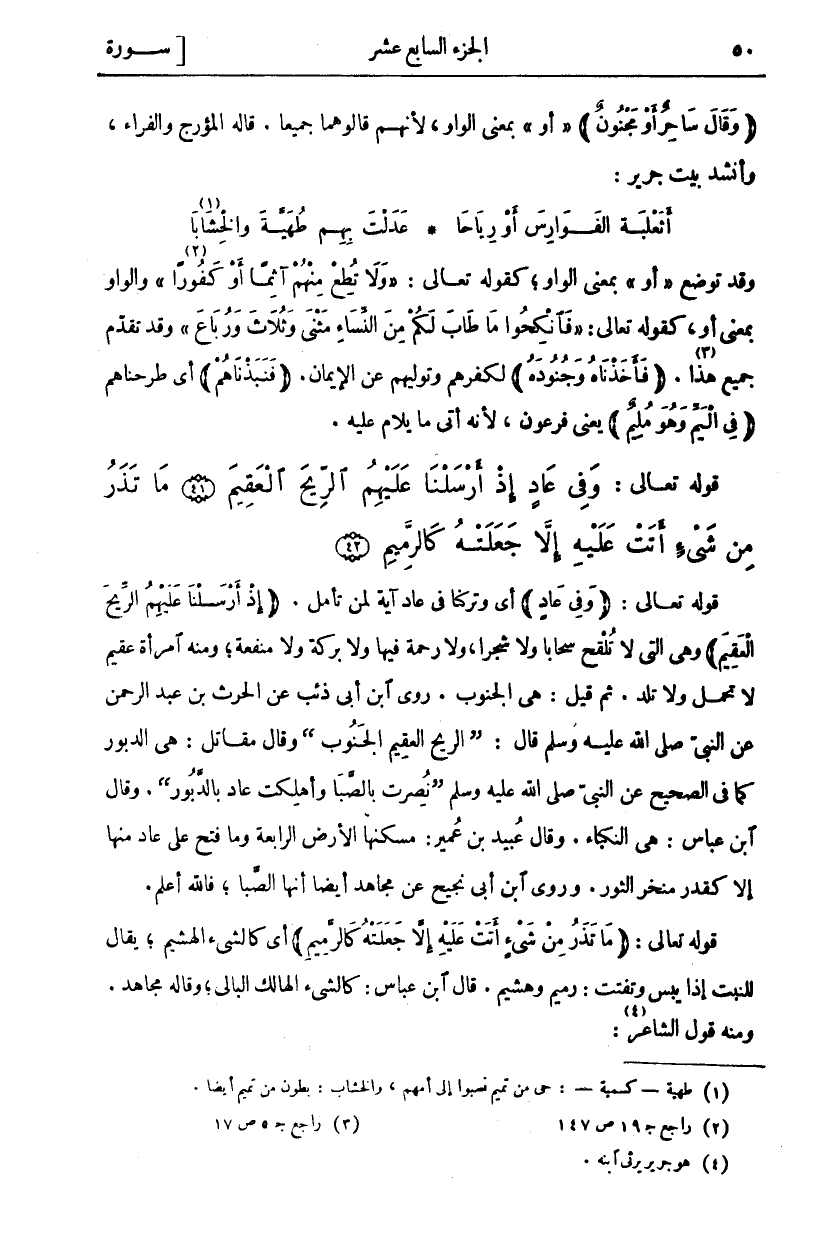 ٥٠ الجزء السابع عشر [ ســورة
﴿ وَقَالَ سَاحِرٌ أَوْ مَجْنُونٌ ﴾ « أو » بمعنى الواو ، لأنهـم قالوهما جميعا . قاله المؤرج والفراء ،
وأنشد بيت جرير :
أَثَعْلَبَـة الفَــوارِسَ أَوْ رِيَاحَا * عَدَلْتَ بِهِـم طُهَيَّـةَ والِخشَابَا (١)
وقد توضع « أو » بمعنى الواو ؛ كقوله تعـالى : «وَلَا تُطِعْ مِنْهُمْ آثِمًـا أَوْ كَفُورًا (٢) » والواو
بمعنى أو ، كقوله تعالى : «فَٱنْكِحُوا مَا طَابَ لَكُمْ مِنَ النِّسَاءِ مَثْنَى وَثُلَاثَ وَرُبَاعَ » وقد تقدّم
جميع هذا (٣) . ﴿ فَأَخَذْنَاهُ وَجُنُودَهُ ﴾ لكفرهم وتوليهم عن الإيمان. ﴿ فَنَبَذْنَاهُمْ ﴾ أى طرحناهم
﴿ فِى الْيَمِّ وَهُوَ مُلِيمٌ ﴾ يعنى فرعون ، لأنه أتى ما يلام عليه .
قوله تعـالى : وَفِى عَادٍ إِذْ أَرْسَلْنَا عَلَيْهِمُ ٱلرِّيحَ ٱلْعَقِيمَ ٤١ مَا تَذَرُ
مِن شَىْءٍ أَتَتْ عَلَيْـهِ إِلَّا جَعَلَتْـهُ كَالرَّمِيمِ ٤٢
قوله تعـالى : ﴿ وَفِى عَادٍ ﴾ أى وتركنا فى عاد آية لمن تأمل . ﴿ إِذْ أَرْسَـلْنَا عَلَيْهِمُ الرِّيحَ
الْعَقِيَم ﴾ وهى التى لا تُلْقح سحابا ولا شجرا ، ولا رحمة فيها ولا بركة ولا منفعة ؛ ومنه آمرأة عقيم
لا تحمـل ولا تلد . ثم قيل : هى الجنوب . روى آبن أبى ذئب عن الحرث بن عبد الرحمن
عن النبىّ صلى الله عليـه وسلم قال : ” الريح العقيم الجَنُوب “ وقال مقـاتل : هى الدبور
كما فى الصحيح عن النبىّ صلى الله عليه وسلم ”نُصِرت بالصَّبَا وأهلِكت عاد بالدَّبُور“ . وقال
آبن عباس : هى النكباء . وقال عُبيد بن عُمير: مسكنها الأرض الرابعة وما فتح على عاد منها
إلا كقدر منخر الثور . وروى آبن أبى نجيح عن مجاهد أيضا أنها الصَّبا ؛ فالله أعلم.
قوله تعالى : ﴿ مَا تَذَرُ مِنْ شَىْءٍ أَتَتْ عَلَيْهِ إِلَّا جَعَلَتْهُ كَالرَّمِيمِ ﴾ أى كالشىء الهشيم ؛ يقال
للنبت إذا يبس وتفتت : رميم وهشيم . قال آبن عباس : كالشىء الهالك البالى ؛ وقاله مجاهد .
ومنه قول الشاعر (٤) :
(١) طهية — كسمية — : حى من تميم نسبوا إلى أمهم ، والخشاب : بطون من تميم أيضا .
(٢) راجع جـ ١٩ ص ١٤٧ (٣) راجع جـ ٥ ص ١٧
(٤) هو جرير يرثى آبنه .